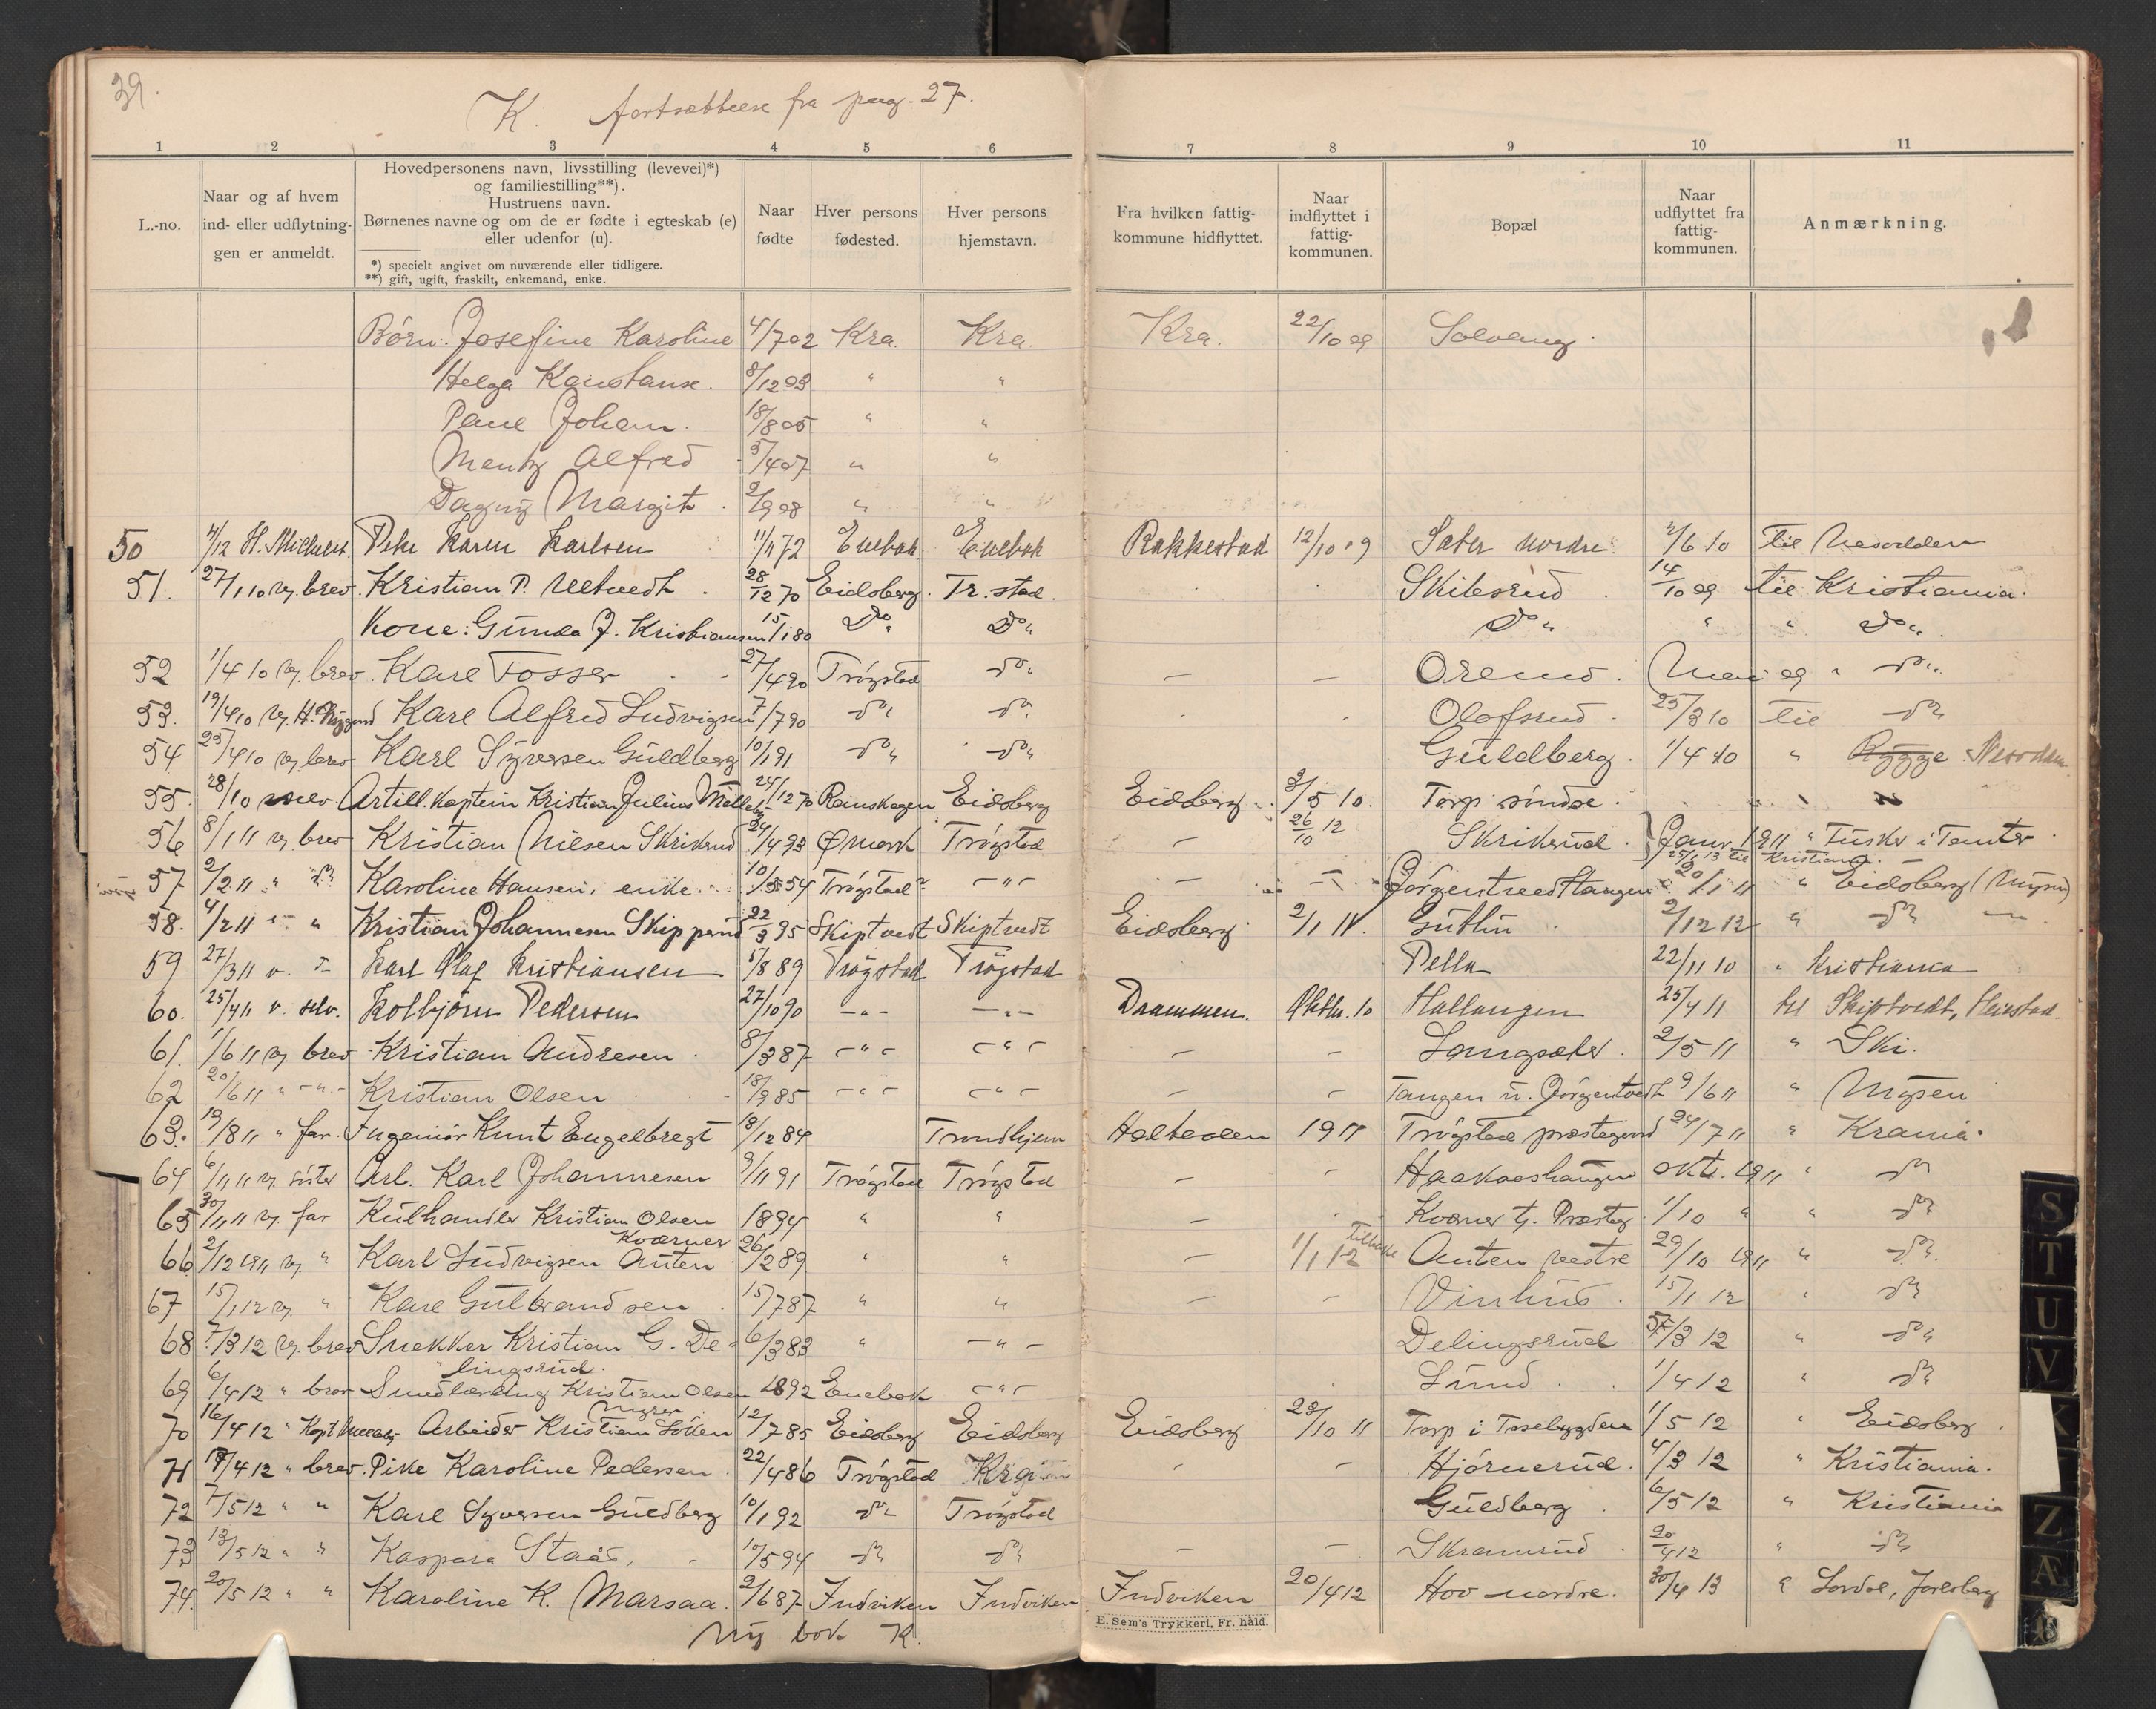 39.
K. fortsættelse fra pag. 27.
1 2 3 4 5 6 7 8 9 10 11
L.-no.
Naar og af hvem ind- eller udflytning-gen er anmeldt.
Hovedpersonens navn, livsstilling (levevei)*)
og familiestilling**).
Hustruens navn.
Børnenes navne og om de er fødte i egteskab (e)
eller udenfor (u).
*) specielt angivet om nuværende eller tidligere.
**) gift, ugift, fraskilt, enkemand, enke.
Naar fødte
Hver persons fødested.
Hver persons hjemstavn.
Fra hvilken fattig-kommune hidflyttet.
Naar indflyttet i fattig-kommunen.
Bopæl
Naar udflyttet fra fattig-kommunen.
Anmærkning.
Børn: Josefine Karoline 4/7 02 Kra. Kra. Kra. 22/10 09 Solvang.
Helga Konstanse. 8/12 03 " "
Paul Johan. 18/8 05 " "
Mentz Alfred 5/4 07 " "
Dagny Margit. 2/9 08 " "
50 4/12 H. Pike Karen Karlsen 11/1 72 Enebak Enebak Rakkestad 12/10 09 Sæter nordre 4/6 10 til Nesodden
51. 27/1 10 v. brev. Kristian P. 28/12 70 Eidsberg. Tr.stad. Skibsrud 14/10 09 til Kristiania.
Kone: Gunda J. Kristiansen 15/1 80 Do " Do " Do " " " Do ".
52 1/4 10 v. brev Karl Fosser 27/4 90 Trøgstad do " — — Orerud. Mai 09 " do "
53. 19/4 10 v. H. Karl Alfred Ludvigsen 7/7 90 do " do " Olafsrud. 25/3 10 til do
54 25/4 10 v. brev Karl Syversen Guldberg 10/1 91 do " do " Guldberg. 1/4 10 " Rygge Nesodden
55. 28/10 selv Artill. Kaptein Kristian Julius 24/12 70 Ramskogen Eidsberg Eidsberg 3/5 10. Torp søndre.
56 8/1 11 v. brev Kristian Nilsen Skriksrud 24/4 93 Ømark Trøgstad — 26/10 12 Skriksrud. Janr 1911 " Fusker i Tomter
25/1 13 til Kristiania.
57 2/2 11 " do Karoline Hansen, enke. 10/3 54 Trøgstad — " — — — Jørgentvedt tangen 20/1 11 " Eidsberg (Mysen)
58. 4/2 11 " " Kristian Johannesen Skipperud 22/3 95 Skiptvedt Skiptvedt Eidsberg 2/1 11. Gutlin 2/12 12 " do —
59 27/3 11 v. Karl Olaf Kristiansen 5/8 89 Trøgstad Trøgstad Pella 22/11 10 " Kristiania
60. 25/4 11 v. selv. Kolbjørn Pedersen 27/10 90 — " — — " — Drammen. Oktbr. 10 Hallangen 25/4 11 til Skiptvedt,
61. 1/6 11 v. brev Kristian Andresen 8/3 87 — " — — " — — — Langsæter. 2/5 11 " Ski.
62 20/6 11 " — " — Kristian Olsen 18/3 85 — " — — " — — — Tangen u. Jørgentvedt 9/6 11 " Mysen
63. 19/8 11 " far. Ingeniør Knut Engelbregt 18/12 84 Trondhjem Holtaalen 1911 Trøgstad præstegaard 24/7 11 " Krania.
64 6/11 11 v. søster Arb. Karl Johannesen 9/11 91 Trøgstad Trøgstad — — Haakaashaugen okt. 1911 " do
65 30/11 11 v. far Kulhandler Kristian Olsen 1894 " " — Kværner u. Præsteg. 1/10 " " do
Kværner
66 2/12 1911 v. " Karl Ludvigsen Auten 26/2 89 " " — 1/1 12 tilbake Auten vestre 29/10 1911 " do.
67 15/1 12 v. " Karl Gulbrandsen 15/7 87 " " — — Vinhus. 15/1 12 " do
68 7/3 12 v. brev Snekker Kristian G. De- 6/3 83 " — " — Delingsrud /3 12 " do "
lingsrud.
69 6/4 12 " brev Smedlærling Kristian Olsen 1892 Enebak — " — Lund. 1/4 12 " do
Mysen
70 16/4 12 " Kapt. Arbeider Kristian 12/7 85 Eidsberg Eidsberg Eidsberg 23/10 11 Torp i Tosebygden 1/5 12 " Eidsberg.
71 /4 12 " brev. Pike Karoline Pedersen 22/4 86 Trøgstad — Hjørnerud. 4/3 12 " Kristiania.
72 7/5 12 " " Karl Syversen Guldberg 10/1 92 do Trøgstad Guldberg 6/5 12 " Kristiania
73 13/5 12 " " Kaspara Staas, 10/5 94 do do — — Skramrud 20/4 12 " do
74. 20/5 12 " " Karoline K. Marsaa. 2/6 87 Indviken Indviken Indviken 20/4 12 Hov nordre. 30/4 13 "
Ny bok K.
E. Sem's Trykkeri, Fr. hald.
S
T
U
V
Z
Æ